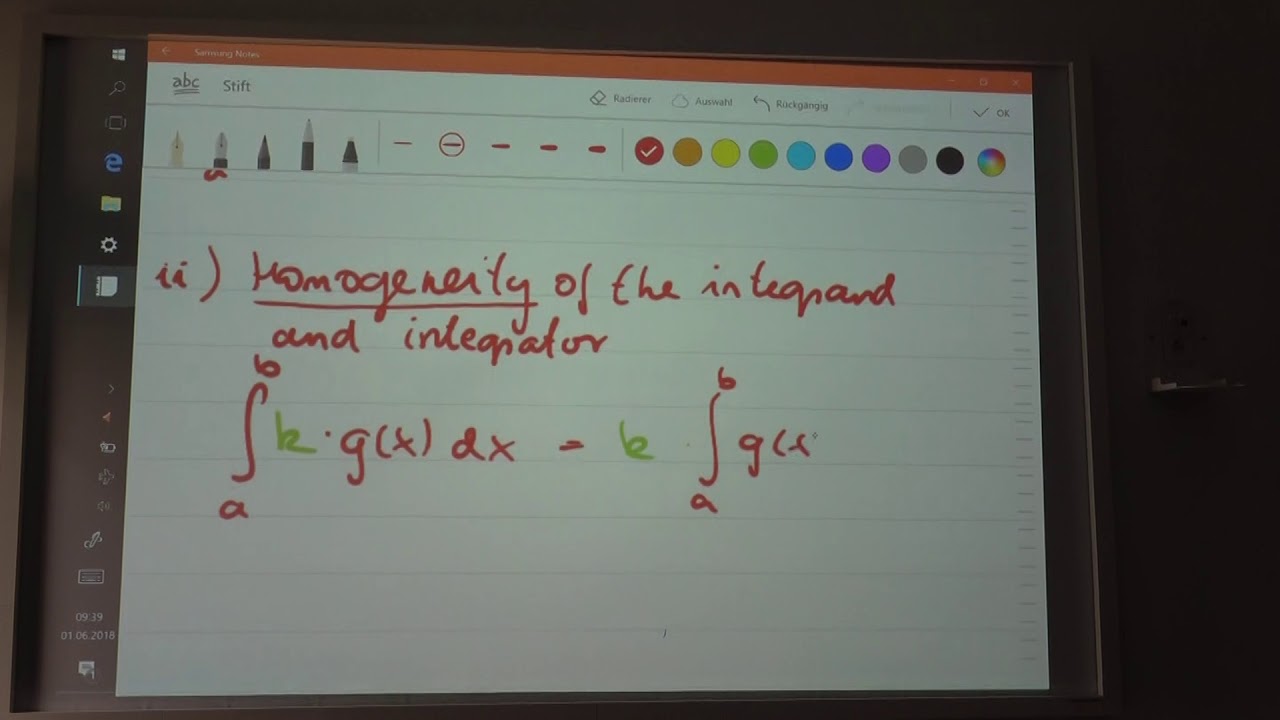 Samsung Notes
abc Stift
Radierer Auswahl Rückgängig OK
ii) Homogeneity of the integrand
and integrator
∫_a^b k · g(x) dx = k · ∫_a^b g(x
09:39
01.06.2018